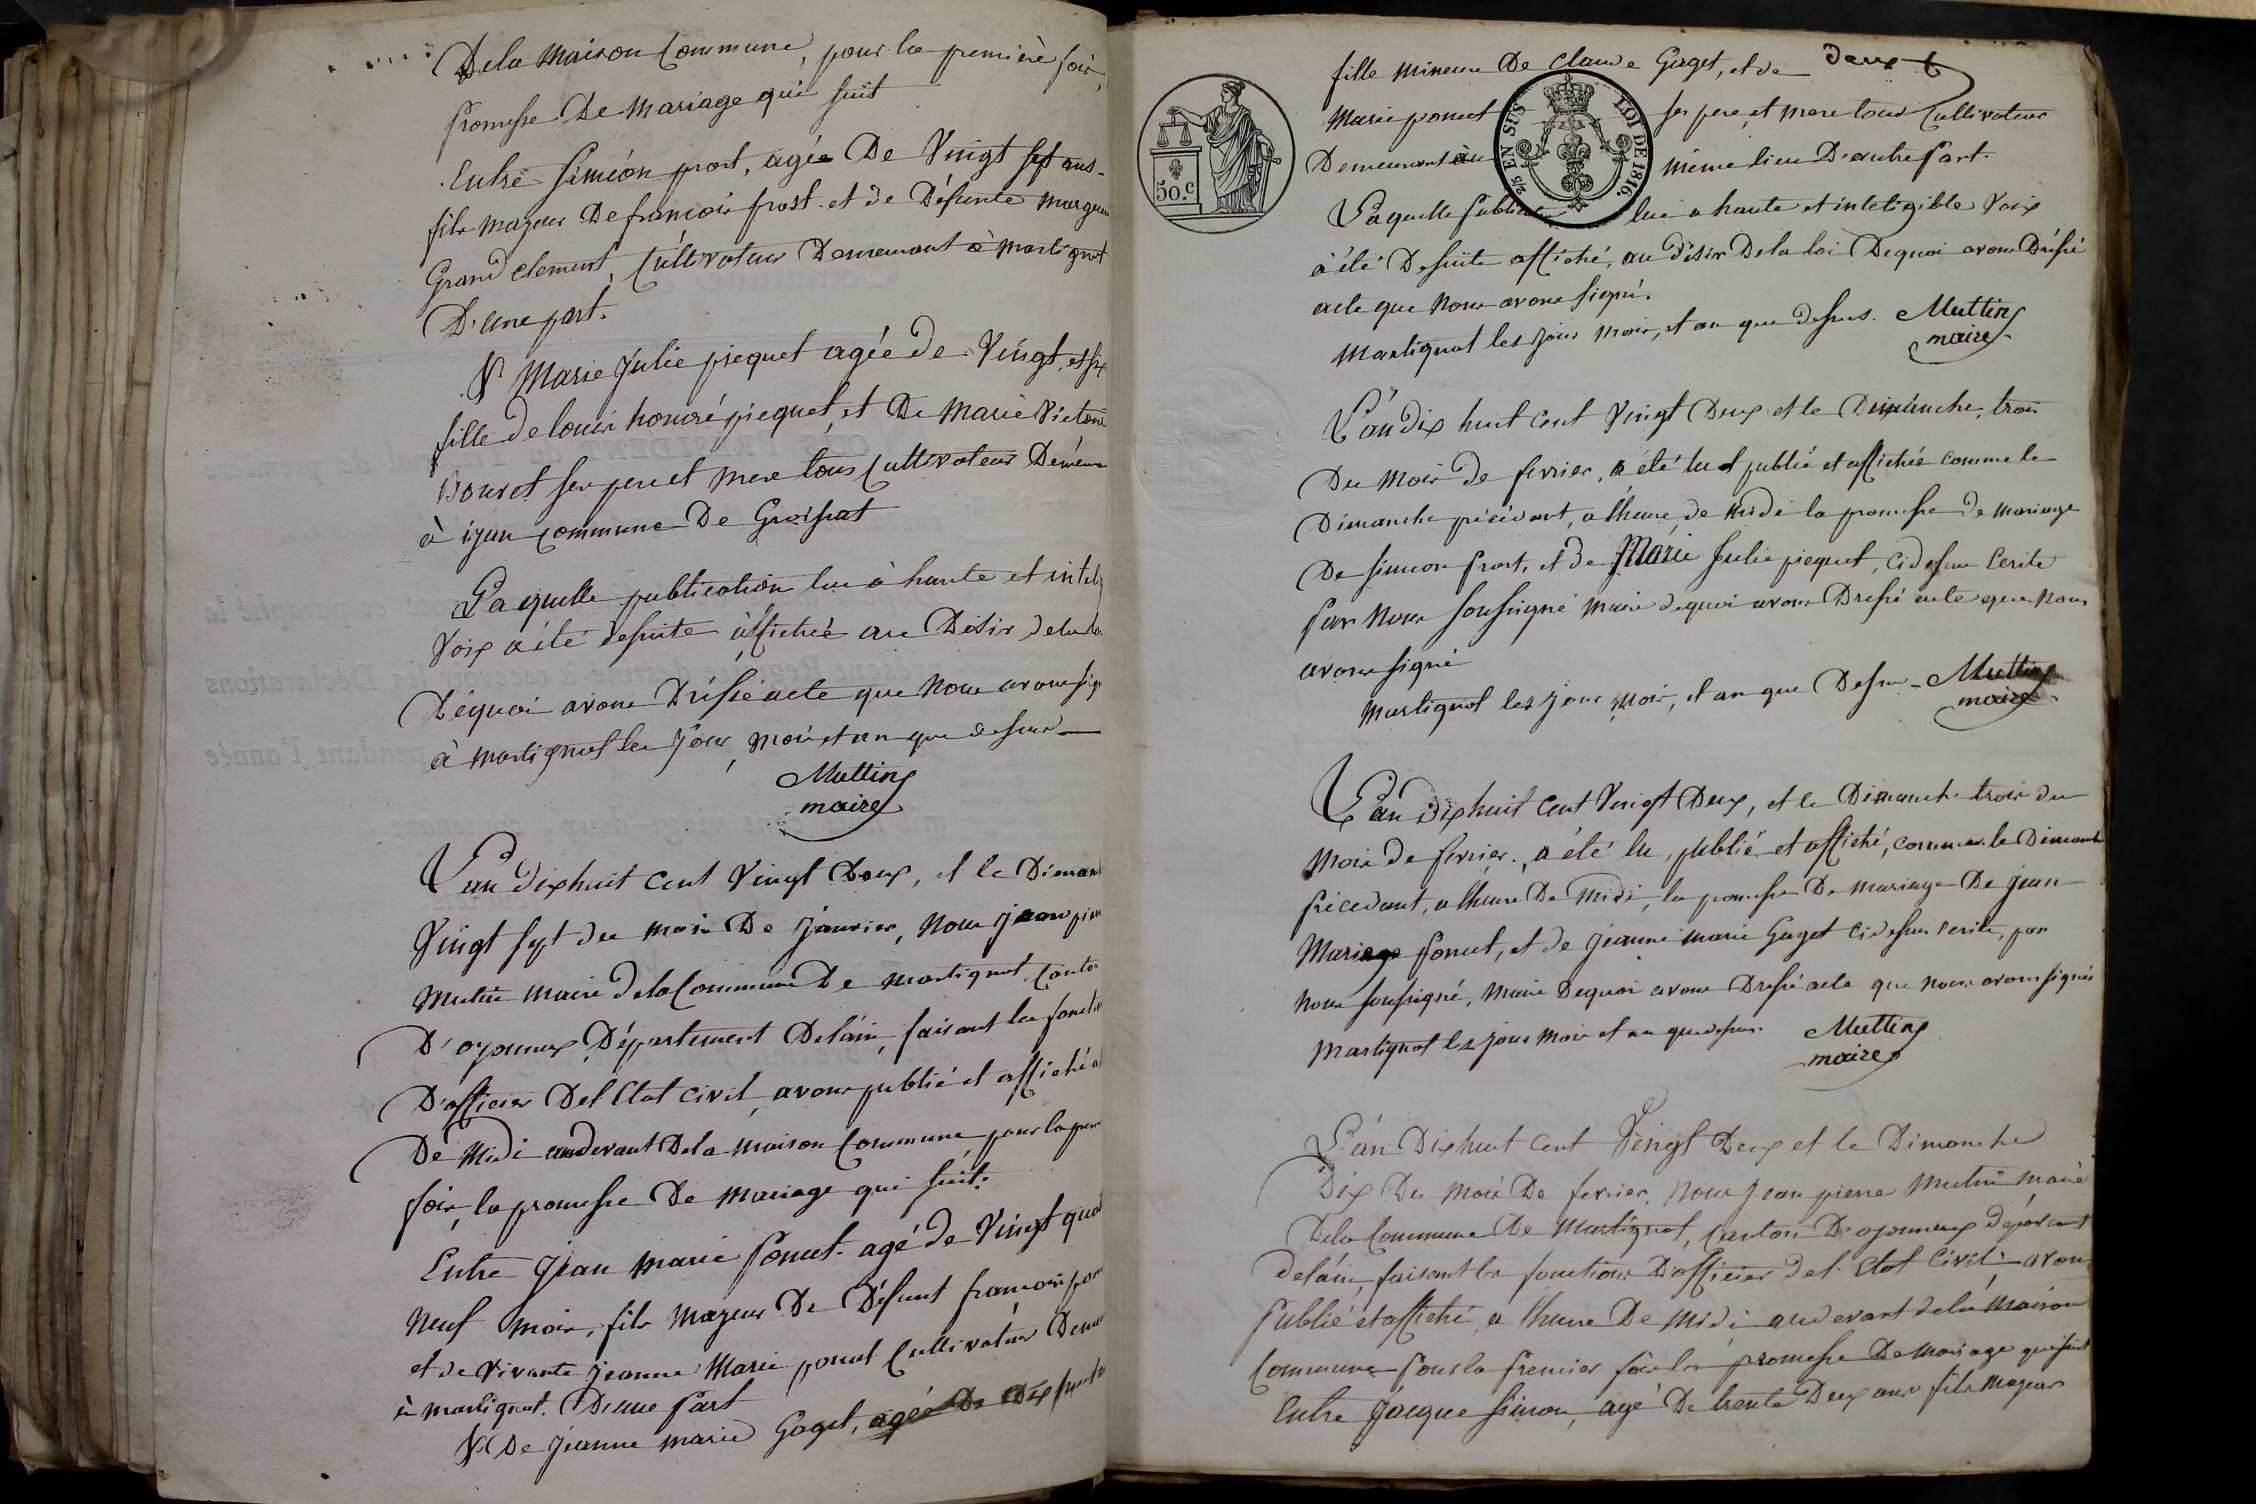 De la maison Commune, pour la premierè fois,
promesse De mariage qui suit
Entre Siméon prost, agée De Vingt sept ans
fils majeur De francois prost et de Défunte marguer
Grand clement, Cultivateur Demeurant à martignat
D'une part.
& Marie Julie piequet agée de Vingt et six
fille de louis honoré piequet, et De Marie Victoire
Bouret ses pere et mere tous Cultivateur Demeur
à ijan commune De Groissiat
Laquelle publication lue à haute et intelig
Voix a été desuite affichée au Désir de la loi
Dequoi avons Dréssé acte que Nous avons sig
à martignat les Jour, mois et an que dessus
Muttin
maire
L'an dixhuit cent Vingt Deux, et le Diman
Vingt sept du mois De Janvier, Nous jean pier
Mutin maire De la Commune De martignat, Canton
D'oyonnax, Département De l'ain, faisant les fonctio
D'officier De l'Etat civil, avons publié et affiché a
De Midi audevant De la maison Commune pour la prem
fois, la promesse De mariage qui suit.
Entre Jean marie ponet agé de Vingt quat
Neuf mois, fils majeur De Défunt francois pon
et de vivante jeanne Marie ponet Cultivateur Demeu
à martignat. D'une part
& De jeanne marie Goget, agée De Dix
fille mineure De claude Goget, et de deux
Marie ponet ses pere, et mere tous Cultivateur
Demeurant au même lieu D'autre part.
50.c
2/5 EN SUS LOI DE 1816.
Laquelle Publication lue a haute et inteligible Voix
a été Desuite affiché, au désir De la loi Dequoi avons Dréssé
acte que Nous avons signé.
Martignat les jour mois, et an que dessus. Muttin
maire
L'an dix huit cent Vingt Deux et le Dimanche, trois
Du mois de fevrier, a été lu et publié et affichée comme le
Dimanche précédant, a lheure de Midi la promesse de mariage
De Simeon Prost, et de Marie Julie piequet, ci dessus Ecrite
Par Nous soussigné maire dequoi avons Dressé acte que Nous
avons signé
Martignat les jour mois, et an que Dessus - Muttin
maire
L'an Dixhuit Cent Vingt Deux, et le Dimanche trois du
mois de fevrier, a été lu, publié et affiché, comme le Dimanche
Précedant, a lheure De Midi, la promesse De mariage De jean
Mariage Ponet, et de jeanne marie Goget ci dessus ecrite, par
Nous soussigné, maire Dequoi avons Dressé acte que nous avons signés
Martignat les jour mois et an que dessus. Muttin
maire
L'an Dixhuit cent Vingt Deux et le Dimanche
Dix Du mois De fevrier, Nous Jean pierre Mutin maire
De la Commune De Martignat, Canton D'oyonnax
de l'ain, faisant les fonctions D'officier de l'Etat Civil avons
Publié et affiché a lheure De Midi audevant de la maison
Commune Pour la Premier fois la promesse De mariage qui suit
Entre Jacque Simon, agé De trente Deux ans fils majeur